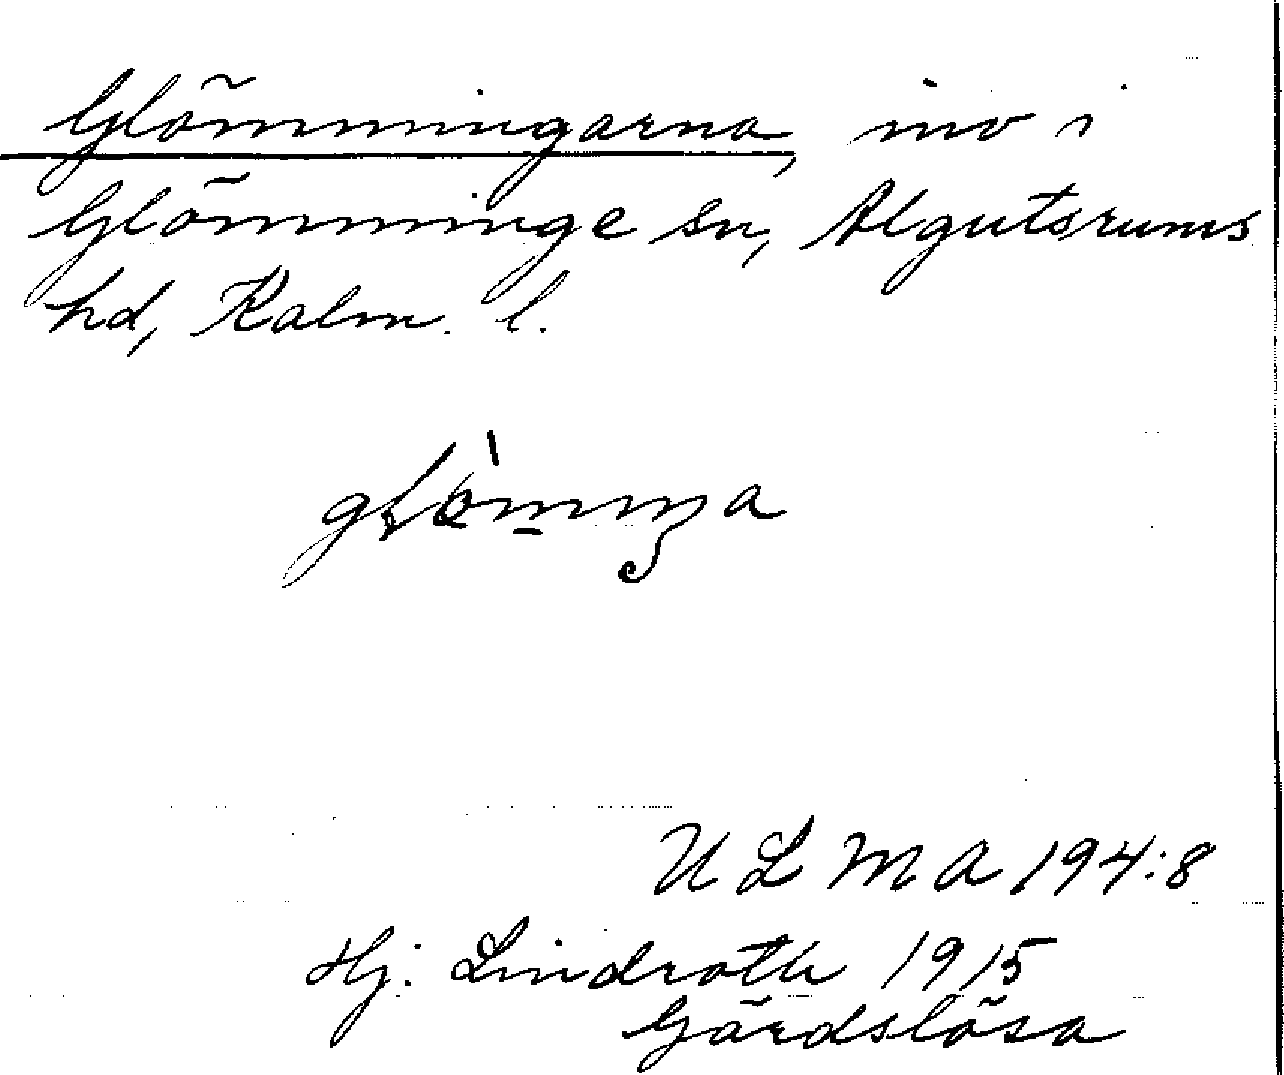 Glömmingarna, inv i
Glömminge sn, Algutsrums
hd, Kalm. l.
ULMA 194:8
Hj. Lindroth 1915
Gärdslösa